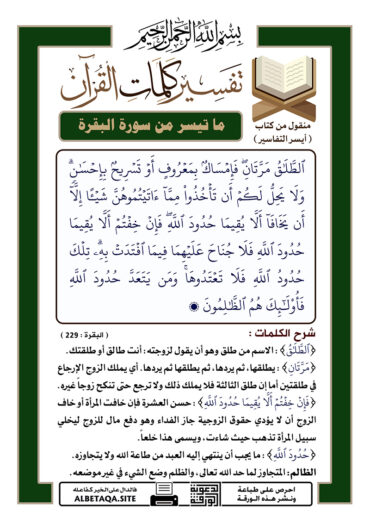 بسم الله الرحمن الرحيم
تفسير كلمات القرآن
ما تيسر من سورة البقرة
منقول من كتاب
( أيسر التفاسير )
ٱلطَّلَٰقُ مَرَّتَانِۖ فَإِمۡسَاكُۢ بِمَعۡرُوفٍ أَوۡ تَسۡرِيحُۢ بِإِحۡسَٰنٖۗ
وَلَا يَحِلُّ لَكُمۡ أَن تَأۡخُذُواْ مِمَّآ ءَاتَيۡتُمُوهُنَّ شَيۡـًٔا إِلَّآ
أَن يَخَافَآ أَلَّا يُقِيمَا حُدُودَ ٱللَّهِۖ فَإِنۡ خِفۡتُمۡ أَلَّا يُقِيمَا
حُدُودَ ٱللَّهِ فَلَا جُنَاحَ عَلَيۡهِمَا فِيمَا ٱفۡتَدَتۡ بِهِۦۗ تِلۡكَ
حُدُودُ ٱللَّهِ فَلَا تَعۡتَدُوهَاۚ وَمَن يَتَعَدَّ حُدُودَ ٱللَّهِ
فَأُوْلَٰٓئِكَ هُمُ ٱلظَّٰلِمُونَ
شرح الكلمات :
( البقرة : 229 )
﴿ٱلطَّلَٰقُ﴾ : الاسم من طلق وهو أن يقول لزوجته : أنت طالق أو طلقتك .
﴿مَرَّتَانِ﴾ : يطلقها ، ثم يردها ، ثم يطلقها ثم يردها . أي يملك الزوج الإرجاع
في طلقتين أما إن طلق الثالثة فلا يملك ذلك ولا ترجع حتى تنكح زوجاً غيره .
﴿فَإِنۡ خِفۡتُمۡ أَلَّا يُقِيمَا حُدُودَ ٱللَّهِ﴾ : حسن العشرة فإن خافت المرأة أو خاف
الزوج أن لا يؤدي حقوق الزوجية جاز الفداء وهو دفع مال للزوج ليخلي
سبيل المرأة تذهب حيث شاءت ، ويسمى هذا خلعاً .
﴿حُدُودَ ٱللَّهِ﴾ : ما يجب أن ينتهي إليه العبد من طاعة الله ولا يتجاوزه .
الظالم : المتجاوز لما حد الله تعالى ، والظلم وضع الشيء في غير موضعه .
احرص على طباعة
ونشر هذه الورقة
فالدال على الخير كفاعله
ALBETAQA.SITE